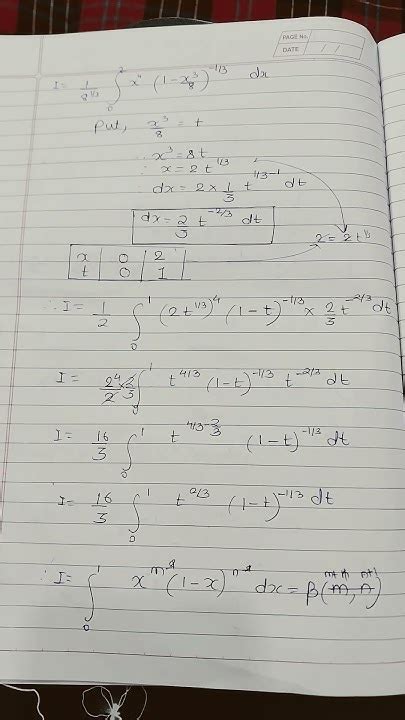 PAGE No.
DATE / /
I = 1/8^(1/3) ∫₀² x⁴ (1 - x³/8)^(-1/3) dx
Put, x³/8 = t
∴ x³ = 8t
∴ x = 2 t^(1/3)
∴ dx = 2 × 1/3 t^(1/3 - 1) dt
dx = 2/3 t^(-2/3) dt
2 = 2 t^(1/3)
x | 0 | 2
t | 0 | 1
∴ I = 1/2 ∫₀¹ (2 t^(1/3))^4 (1-t)^(-1/3) × 2/3 t^(-2/3) dt
I = 2^4/2 × 2/3 ∫₀¹ t^(4/3) (1-t)^(-1/3) t^(-2/3) dt
I = 16/3 ∫₀¹ t^(4/3 - 2/3) (1-t)^(-1/3) dt
I = 16/3 ∫₀¹ t^(2/3) (1-t)^(-1/3) dt
∴ I = ∫₀¹ x^m (1-x)^n dx = β(m+1, n+1)